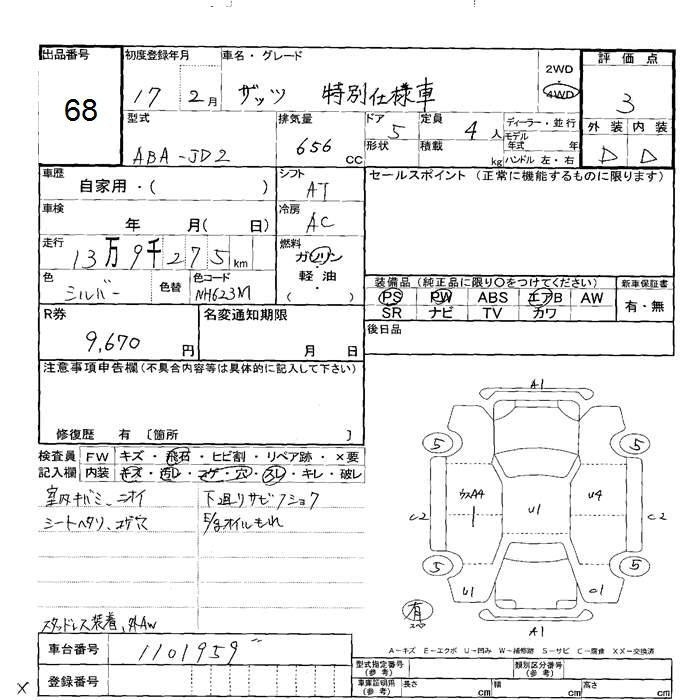 出品番号 初度登録年月 車名・グレード 評価点
68 17 2月 ザッツ 特別仕様車 2WD・4WD 3
型式 排気量 ドア 5 定員 4人 ディーラー・並行 外装 内装
ABA-JD2 656 CC 形状 積載 kg モデル年式 年 D D
ハンドル 左・右
車歴 自家用・( ) シフト AT セールスポイント (正常に機能するものに限ります)
車検 年 月( 日) 冷房 AC
走行 13万9千275km 燃料 ガソリン・軽油・( )
色 シルバー 色替 色コード NH623M
装備品 (純正品に限り○をつけてください) 新車保証書
PS PW ABS エアB AW 有・無
SR ナビ TV カワ
R券 9,670円 名変通知期限 月 日 後日品
注意事項申告欄(不具合内容等は具体的に記入して下さい)
修復歴 有 〔箇所 〕
検査員 FW キズ・飛石・ヒビ割・リペア跡・×要
記入欄 内装 キズ・汚レ・コゲ・穴・スレ・キレ・破レ
室内キバミ、ニオイ 下廻りサビフショク
シートヘタリ、コゲ穴 E/gオイルもれ
スタッドレス装着、外AW
A1
5 5
C2 A4 U1 U4 C2
5 5
U1 C1
有
スペア
A1
A〜キズ E〜エクボ U〜凹み W〜補修跡 S〜サビ C〜腐食 XX〜交換済
車台番号 1101959
登録番号
型式指定番号(参考) 類別区分番号(参考)
車庫証明用(参考) 長さ cm 幅 cm 高さ cm
X